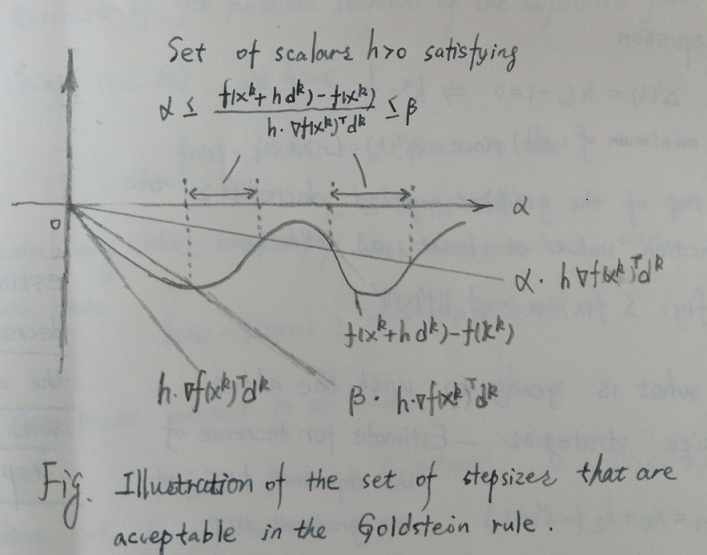 Set of scalars h>0 satisfying
α ≤ f(x^k + h d^k) - f(x^k) / h · ∇f(x^k)^T d^k ≤ β
0
α
α · h ∇f(x^k)^T d^k
f(x^k + h d^k) - f(x^k)
h · ∇f(x^k)^T d^k
β · h · ∇f(x^k)^T d^k
Fig. Illustration of the set of stepsizes that are
acceptable in the Goldstein rule.